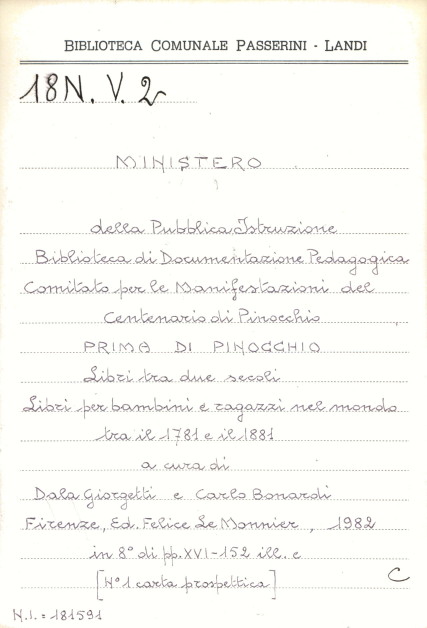 BIBLIOTECA COMUNALE PASSERINI - LANDI
18 N. V. 2
MINISTERO
della Pubblica Istruzione
Biblioteca di Documentazione Pedagogica
Comitato per le Manifestazioni del
Centenario di Pinocchio
PRIMA DI PINOCCHIO
Libri tra due secoli
Libri per bambini e ragazzi nel mondo
tra il 1781 e il 1881
a cura di
Dala Giorgetti e Carlo Bonardi
Firenze, Ed. Felice Le Monnier, 1982
in 8° di pp. XVI-152 ill. e
[N° 1 carta prospettica]
C
N.I. = 181591